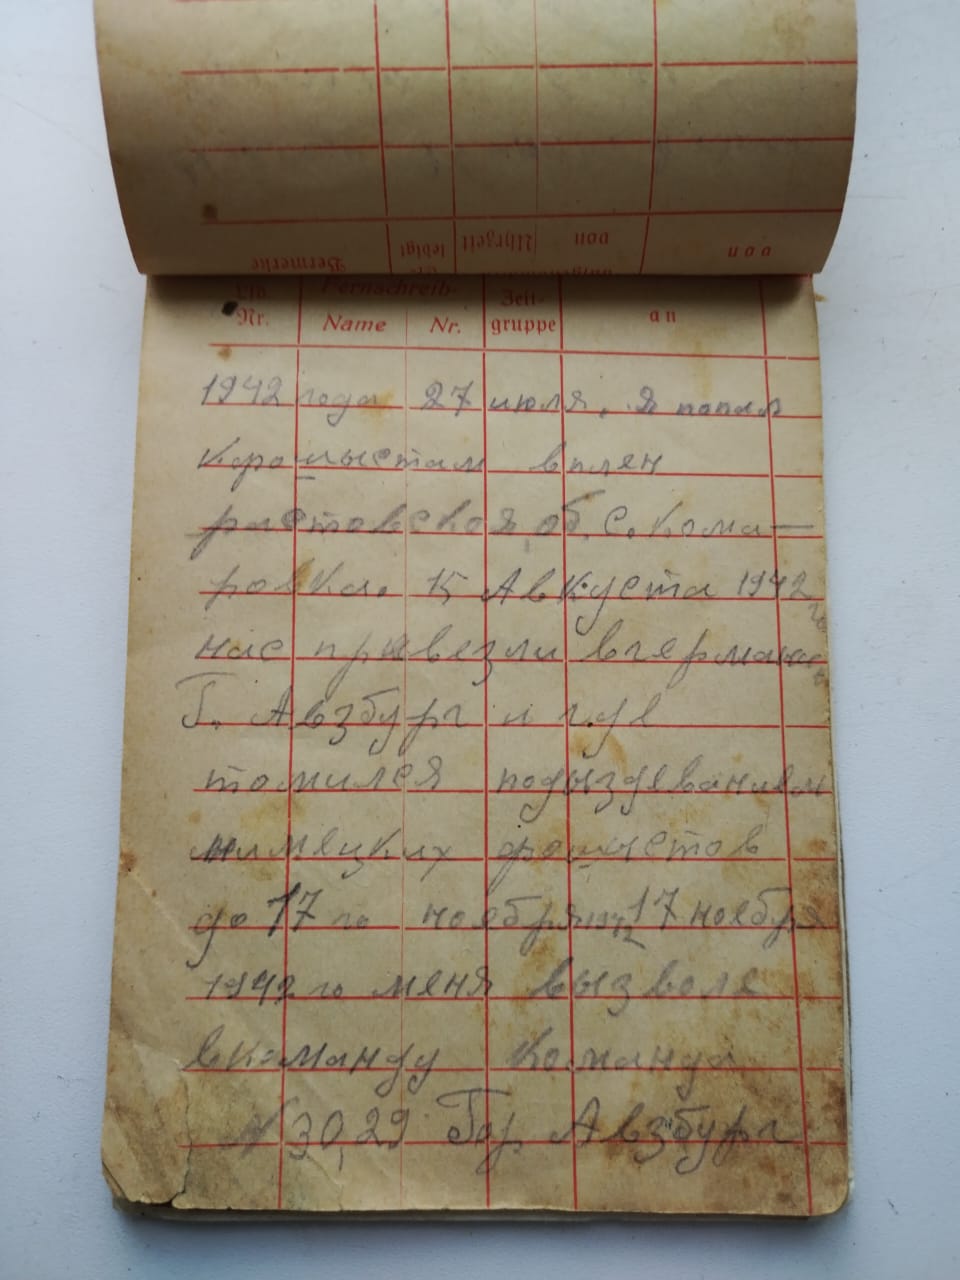 Vermerke
Uhrzeit
von
von
Lfd. Nr.
Fernschreib-
Name
Nr.
Zeit-
gruppe
an
1942 года 27 июля. Я попал
к фашыстам в плян
растовская об. с. Кома-
ровка. 15 Августа 1942 го
нас привезли в германи
Г. Авзбург и где
томился подыздеванием
нимяцких фашыстов
до 17 го ноября 1942 17 ноября
1942 го меня вызвале
в команду команда
N 30,29 Гор Авзбург